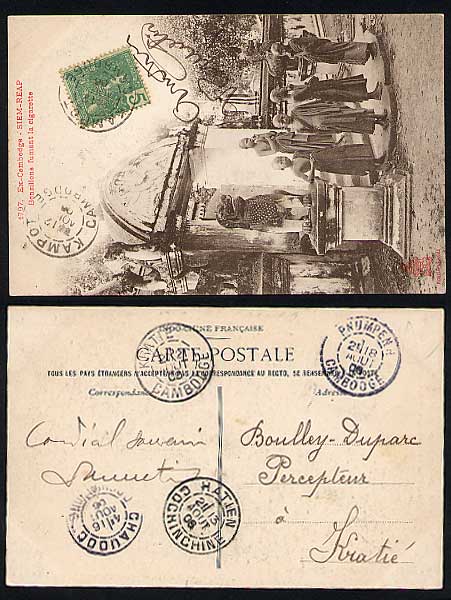 1797. Ex-Cambodge - SIEM-REAP
Bonzillons fumant la cigarette
5
KAMPOT
12
AOUT
CAMBODGE
INDO-CHINE FRANÇAISE
CARTE POSTALE
TOUS LES PAYS ÉTRANGERS N'ACCEPTENT PAS LA CORRESPONDANCE AU RECTO, SE RENSEIGNER À LA POSTE
Correspondance
Adresse
KRATIEH
AOUT
CAMBODGE
PNUMPENH
18
AOUT
CAMBODGE
Cordial souvenir
Boulley-Duparc
Percepteur
à
Kratié
CHAUDOC
16
AOUT
COCHINCHINE
HATIEN
13
AOUT
COCHINCHINE